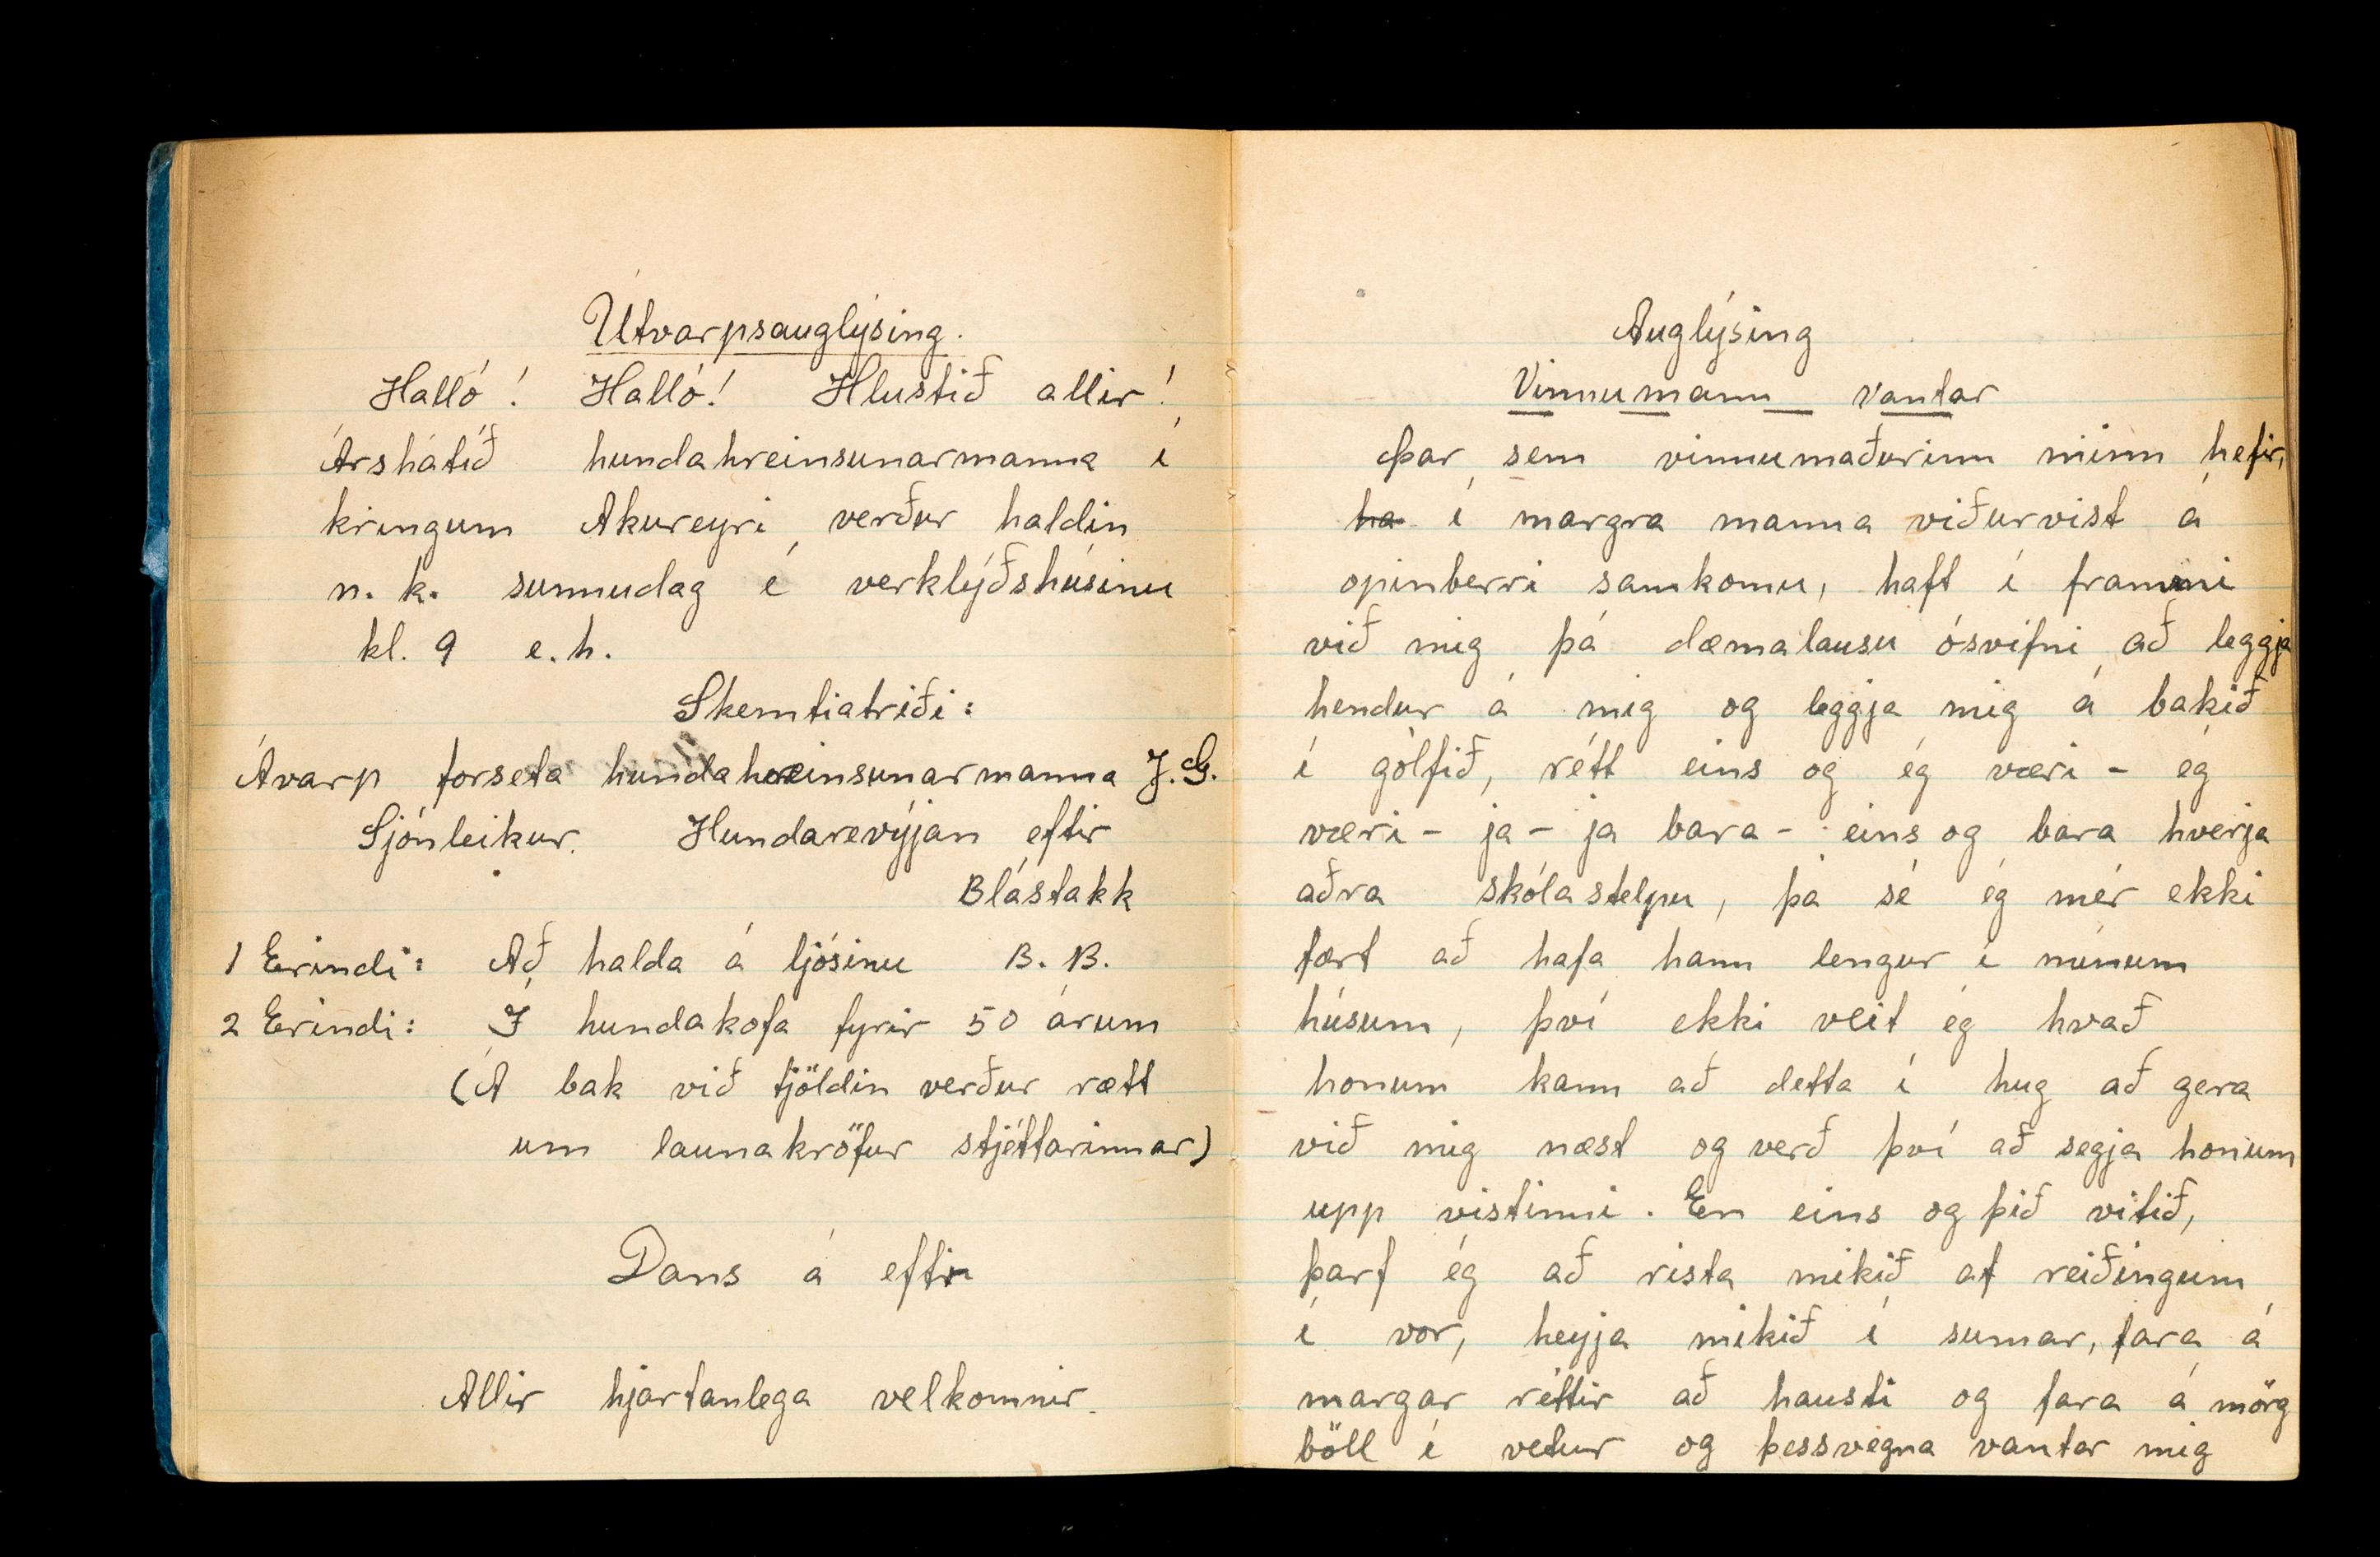 Útvarpsauglýsing.
Halló! Halló! Hlustið allir!
Árshátíð hundahreinsunarmanna í
kringum Akureyri verður haldin
n.k. sunnudag í verklýðshúsinu
kl. 9 e.h.
Skemtiatriði:
Ávarp forseta hundahreinsunarmanna J.G.
Sjónleikur. Hundarevýjan eftir
Blástakk
1 Erindi: Að halda á ljósinu B.B.
2 Erindi: Í hundakofa fyrir 50 árum
(Á bak við tjöldin verður rætt
um launakröfur stjéttarinnar)
Dans á eftir
Allir hjartanlega velkomnir.
Auglýsing
Vinnumann vantar
Þar sem vinnumaðurinn minn hefir,
ha í margra manna viðurvist á
opinberri samkomu, haft í frammi
við mig þá dæmalausu ósvífni að leggja
hendur á mig og leggja mig á bakið
í gólfið, rétt eins og ég væri - ég
væri - ja - ja bara - eins og bara hverja
aðra skólastelpu, þá sé ég mér ekki
fært að hafa hann lengur í mínum
húsum, því ekki veit ég hvað
honum kann að detta í hug að gera
við mig næst og verð því að segja honum
upp vistinni. En eins og þið vitið,
þarf ég að rista mikið af reiðingum
í vor, heyja mikið í sumar, fara á
margar réttir að hausti og fara á mörg
böll í vetur og þessvegna vantar mig